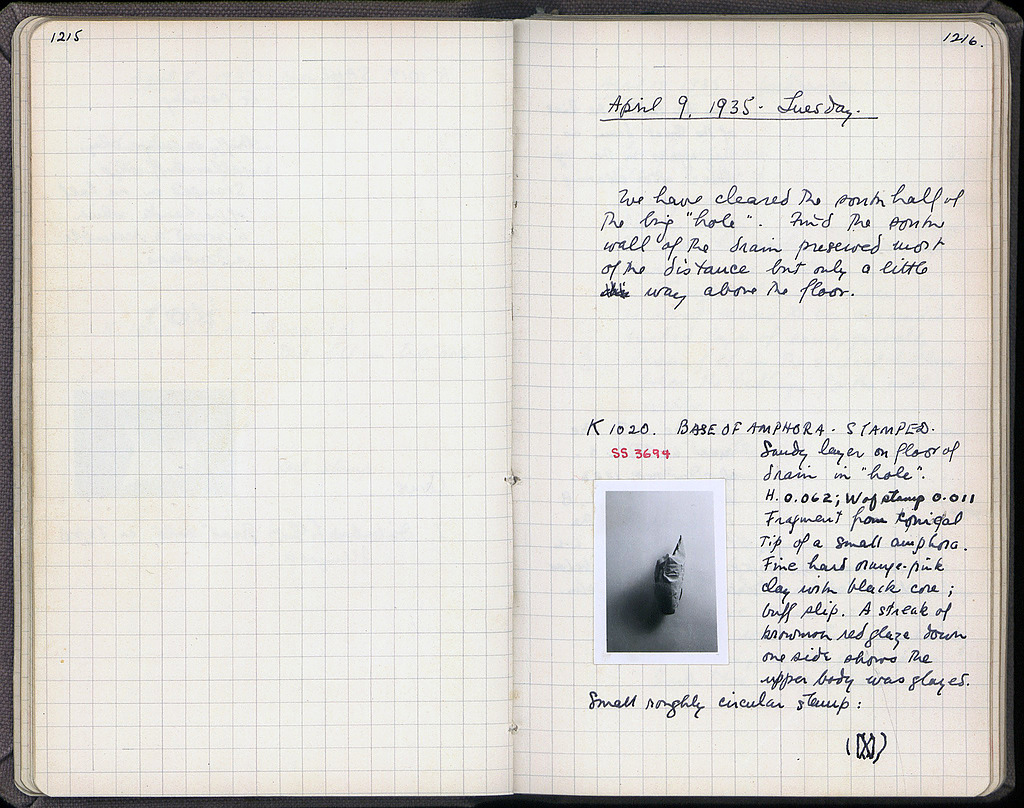 1215
1216.
April 9, 1935 - Tuesday.
We have cleared the south half of
the big "hole". Find the south
wall of the drain preserved most
of the distance but only a little
way above the floor.
K 1020. BASE OF AMPHORA - STAMPED.
SS 3694
Sandy layer on floor of
drain in "hole".
H. 0.062; W of stamp 0.011
Fragment from conical
tip of a small amphora.
Fine hard orange-pink
clay with black core;
buff slip. A streak of
brownish red glaze down
one side shows the
upper body was glazed.
Small roughly circular stamp: